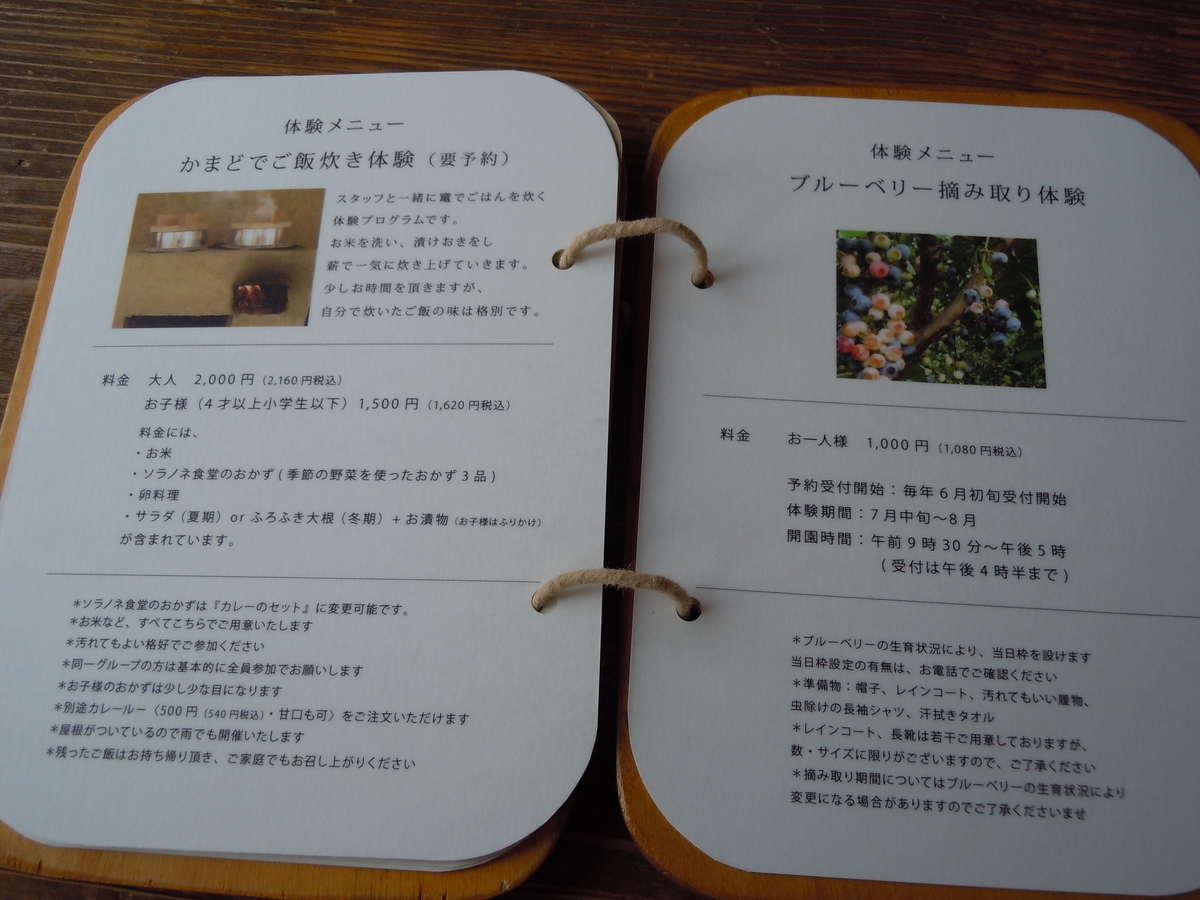 体験メニュー
かまどでご飯炊き体験（要予約）
スタッフと一緒に竃でごはんを炊く
体験プログラムです。
お米を洗い、漬けおきをし
薪で一気に炊き上げていきます。
少しお時間を頂きますが、
自分で炊いたご飯の味は格別です。
料金　大人　2,000円（2,160円税込）
お子様（4才以上小学生以下）1,500円（1,620円税込）
料金には、
・お米
・ソラノネ食堂のおかず(季節の野菜を使ったおかず3品)
・卵料理
・サラダ（夏期）or ふろふき大根（冬期）+お漬物（お子様はふりかけ）
が含まれています。
＊ソラノネ食堂のおかずは『カレーのセット』に変更可能です。
＊お米など、すべてこちらでご用意いたします
＊汚れてもよい格好でご参加ください
＊同一グループの方は基本的に全員参加でお願いします
＊お子様のおかずは少し少な目になります
＊別途カレールー〈500円（540円税込）・甘口も可〉をご注文いただけます
＊屋根がついているので雨でも開催いたします
＊残ったご飯はお持ち帰り頂き、ご家庭でもお召し上がりください
体験メニュー
ブルーベリー摘み取り体験
料金　お一人様　1,000円（1,080円税込）
予約受付開始：毎年6月初旬受付開始
体験期間：7月中旬～8月
開園時間：午前9時30分～午後5時
(受付は午後4時半まで)
＊ブルーベリーの生育状況により、当日枠を設けます
当日枠設定の有無は、お電話でご確認ください
＊準備物：帽子、レインコート、汚れてもいい履物、
虫除けの長袖シャツ、汗拭きタオル
＊レインコート、長靴は若干ご用意しておりますが、
数・サイズに限りがございますので、ご了承ください
＊摘み取り期間についてはブルーベリーの生育状況により
変更になる場合がありますのでご了承くださいませ